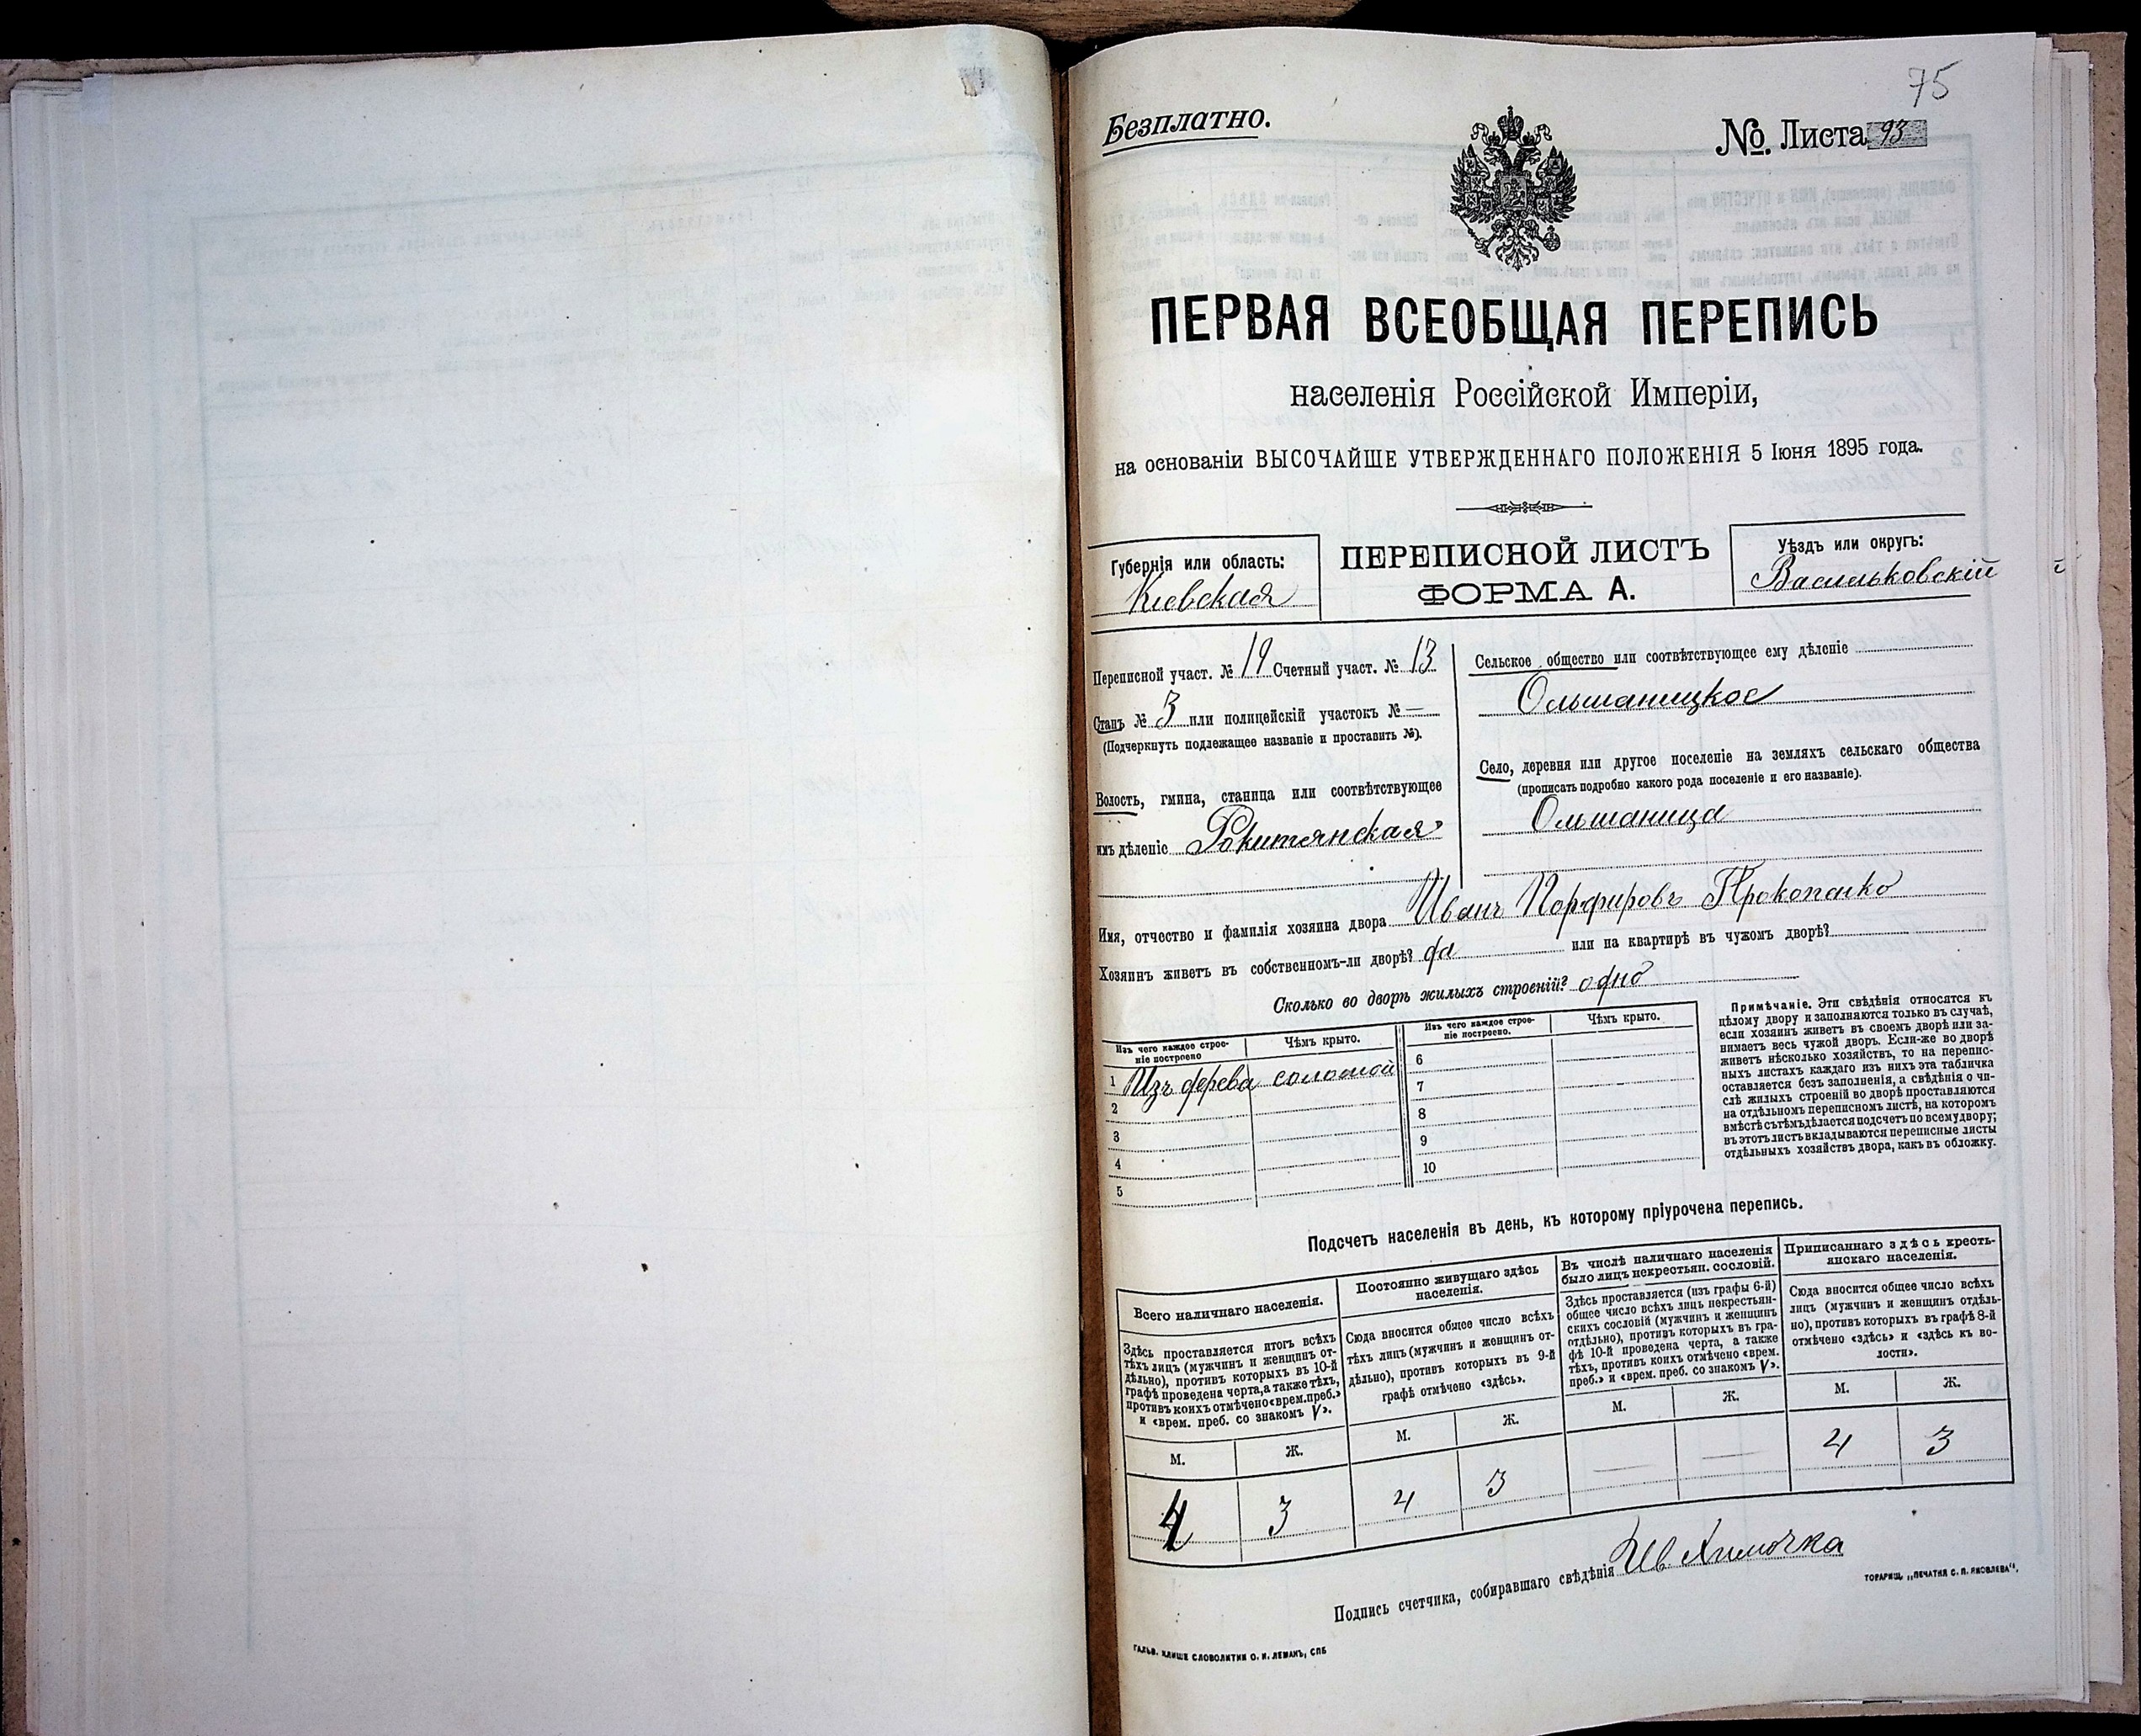 75
Безплатно.
№. Листа 93
ПЕРВАЯ ВСЕОБЩАЯ ПЕРЕПИСЬ
населенія Россійской Имперіи,
на основаніи ВЫСОЧАЙШЕ УТВЕРЖДЕННАГО ПОЛОЖЕНІЯ 5 Іюня 1895 года.
Губернія или область:
Кіевская
ПЕРЕПИСНОЙ ЛИСТЪ
ФОРМА А.
Уѣздъ или округъ:
Васильковскій
Переписной участ. № 19 Счетный участ. № 13
Станъ № 3 или полицейскій участокъ № —
(Подчеркнуть подлежащее названіе и проставить №).
Волость, гмина, станица или соотвѣтствующее
имъ дѣленіе Рокитянская
Сельское общество или соотвѣтствующее ему дѣленіе
Ольшаницкое
Село, деревня или другое поселеніе на земляхъ сельскаго общества
(прописать подробно какого рода поселеніе и его названіе).
Ольшаница
Имя, отчество и фамилія хозяина двора Иванъ Порфировъ Прокопенко
Хозяинъ живетъ въ собственномъ-ли дворѣ? да или на квартирѣ въ чужомъ дворѣ?
Сколько во дворѣ жилыхъ строеній? одно
Изъ чего каждое строе-
ніе построено
Чѣмъ крыто.
1 Изъ дерева соломой
2
3
4
5
Изъ чего каждое строе-
ніе построено.
Чѣмъ крыто.
6
7
8
9
10
Примѣчаніе. Эти свѣдѣнія относятся къ
цѣлому двору и заполняются только въ случаѣ,
если хозяинъ живетъ въ своемъ дворѣ или за-
нимаетъ весь чужой дворъ. Если-же во дворѣ
живетъ нѣсколько хозяйствъ, то на перепис-
ныхъ листахъ каждаго изъ нихъ эта табличка
оставляется безъ заполненія, а свѣдѣнія о чи-
слѣ жилыхъ строеній во дворѣ проставляются
на отдѣльномъ переписномъ листѣ, на которомъ
вмѣстѣ съ тѣмъ дѣлается подсчетъ по всему двору;
въ этотъ листъ вкладываются переписные листы
отдѣльныхъ хозяйствъ двора, какъ въ обложку.
Подсчетъ населенія въ день, къ которому пріурочена перепись.
Всего наличнаго населенія.
Здѣсь проставляется итогъ всѣхъ
тѣхъ лицъ (мужчинъ и женщинъ от-
дѣльно), противъ которыхъ въ 10-й
графѣ проведена черта, а также тѣхъ,
противъ коихъ отмѣчено «врем. преб.»
и «врем. преб. со знакомъ V».
М. Ж.
4 3
Постоянно живущаго здѣсь
населенія.
Сюда вносится общее число всѣхъ
тѣхъ лицъ (мужчинъ и женщинъ от-
дѣльно), противъ которыхъ въ 9-й
графѣ отмѣчено «здѣсь».
М. Ж.
4 3
Въ числѣ наличнаго населенія
было лицъ некрестьян. сословій.
Здѣсь проставляется (изъ графы 6-й)
общее число всѣхъ лицъ некрестьян-
скихъ сословій (мужчинъ и женщинъ
отдѣльно), противъ которыхъ въ гра-
фѣ 10-й проведена черта, а также
тѣхъ, противъ коихъ отмѣчено «врем.
преб.» и «врем. преб. со знакомъ V».
М. Ж.
— —
Приписаннаго здѣсь кресть-
янскаго населенія.
Сюда вносится общее число всѣхъ
лицъ (мужчинъ и женщинъ отдѣль-
но), противъ которыхъ въ графѣ 8-й
отмѣчено «здѣсь» и «здѣсь къ во-
лости».
М. Ж.
4 3
Подпись счетчика, собиравшаго свѣдѣнія Ив. Химочка
ТОВАРИЩ. „ПЕЧАТНЯ С. П. ЯКОВЛЕВА“.
ГАЛЬВ. КЛИШЕ СЛОВОЛИТНИ О. И. ЛЕМАНЪ, СПБ